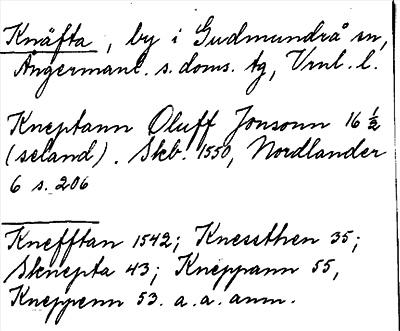 Knäfta, by i Gudmundrå sn,
Ångermanl. s. doms. tg, Vrnl. l.
Kneptann Oluff Jonsonn 16 ½
(seland). Skb. 1550, Nordlander
6 s. 206
Knefftan 1542; Knessthen 35;
Sknepta 43; Kneppann 55,
Kneppenn 53. a. a. anm.